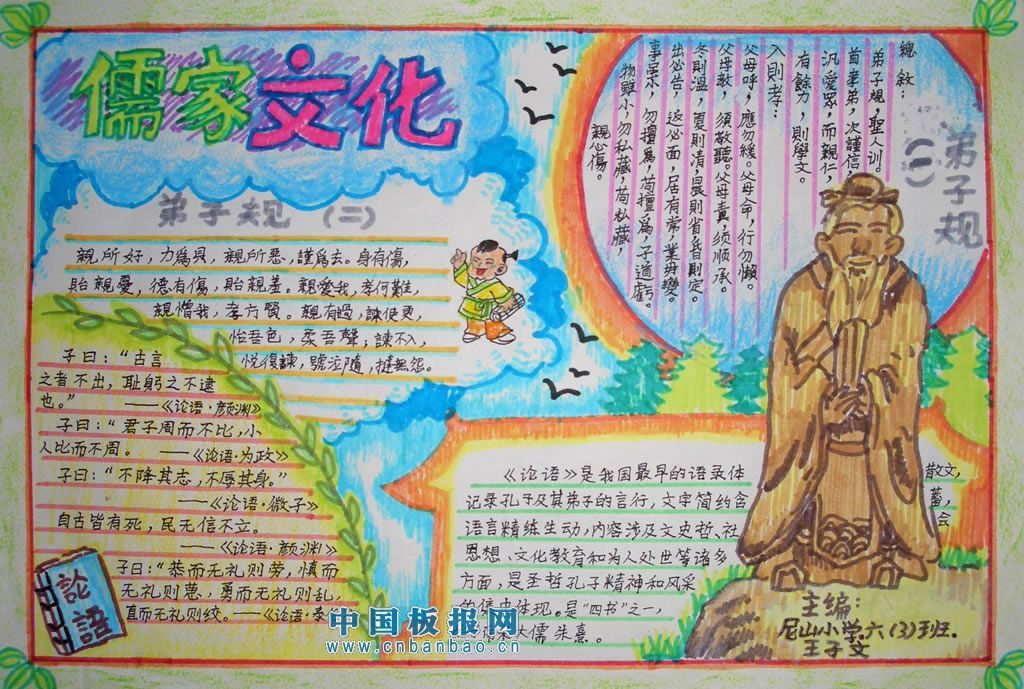 儒家文化
弟子规（二）
親所好，力爲具，親所惡，謹爲去。身有傷，
貽親憂，德有傷，貽親羞。親愛我，孝何難，
親憎我，孝方賢。親有過，諫使更，
怡吾色，柔吾聲，諫不入，
悦復諫，號泣隨，撻無怨。
弟子规
（一）
總敘：
弟子規，聖人訓。
首孝弟，次謹信，
汎愛眾，而親仁，
有餘力，則學文。
入則孝：
父母呼，應勿緩。父母命，行勿懶。
父母教，須敬聽。父母責，须顺承。
冬則溫，夏則清，晨則省，昏則定。
出必告，返必面，居有常，業毋變。
事虽小，勿擅爲，苟擅爲，子道虧。
物雖小，勿私藏，苟私藏，
親心傷。
子曰：“古言
之者不出，耻躬之不逮
也。” ——《论语·颜渊》
子曰：“君子周而不比，小
人比而不周。 ——《论语·为政》
子曰：“不降其志，不辱其身。”
——《论语·微子》
自古皆有死，民无信不立。
——《论语·颜渊》
子曰：“恭而无礼则劳，慎而
无礼则葸，勇而无礼则乱，
直而无礼则绞。——《论语·泰
論語
《论语》是我国最早的语录体
散文，
记录孔子及其弟子的言行，文字简约含
蓄，
语言精练生动，内容涉及文史哲、社
会
思想、文化教育和为人处世等诸多
方面，是圣哲孔子精神和风采
体现。是“四书”之一，
大儒朱熹。
主编：
尼山小学六（3）班.
王子文
中国板报网
www.cnbanbao.cn